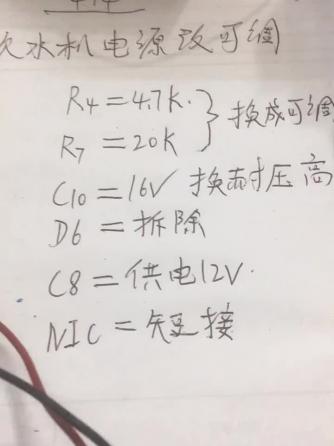 水机电源改可调
R4=4.7K.
R7=20K } 换成可调
C10=16V 换耐压高
D6=拆除
C8=供电12V.
NIC=短接